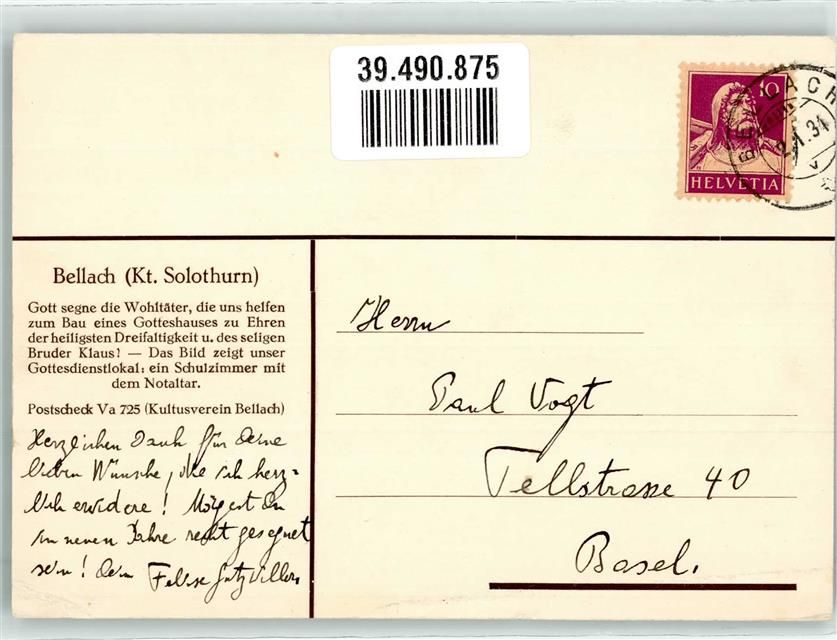 39.490.875
10
HELVETIA
BELLACH
2.I.31
Bellach (Kt. Solothurn)
Gott segne die Wohltäter, die uns helfen
zum Bau eines Gotteshauses zu Ehren
der heiligsten Dreifaltigkeit u. des seligen
Bruder Klaus! — Das Bild zeigt unser
Gottesdienstlokal: ein Schulzimmer mit
dem Notaltar.
Postscheck Va 725 (Kultusverein Bellach)
Herzlichen Dank für deine
lieben Wünsche, die ich herz-
lich erwidere! Mögest du
im neuen Jahre recht gesegnet
sein! dein
Herrn
Paul Vogt
Tellstrasse 40
Basel.